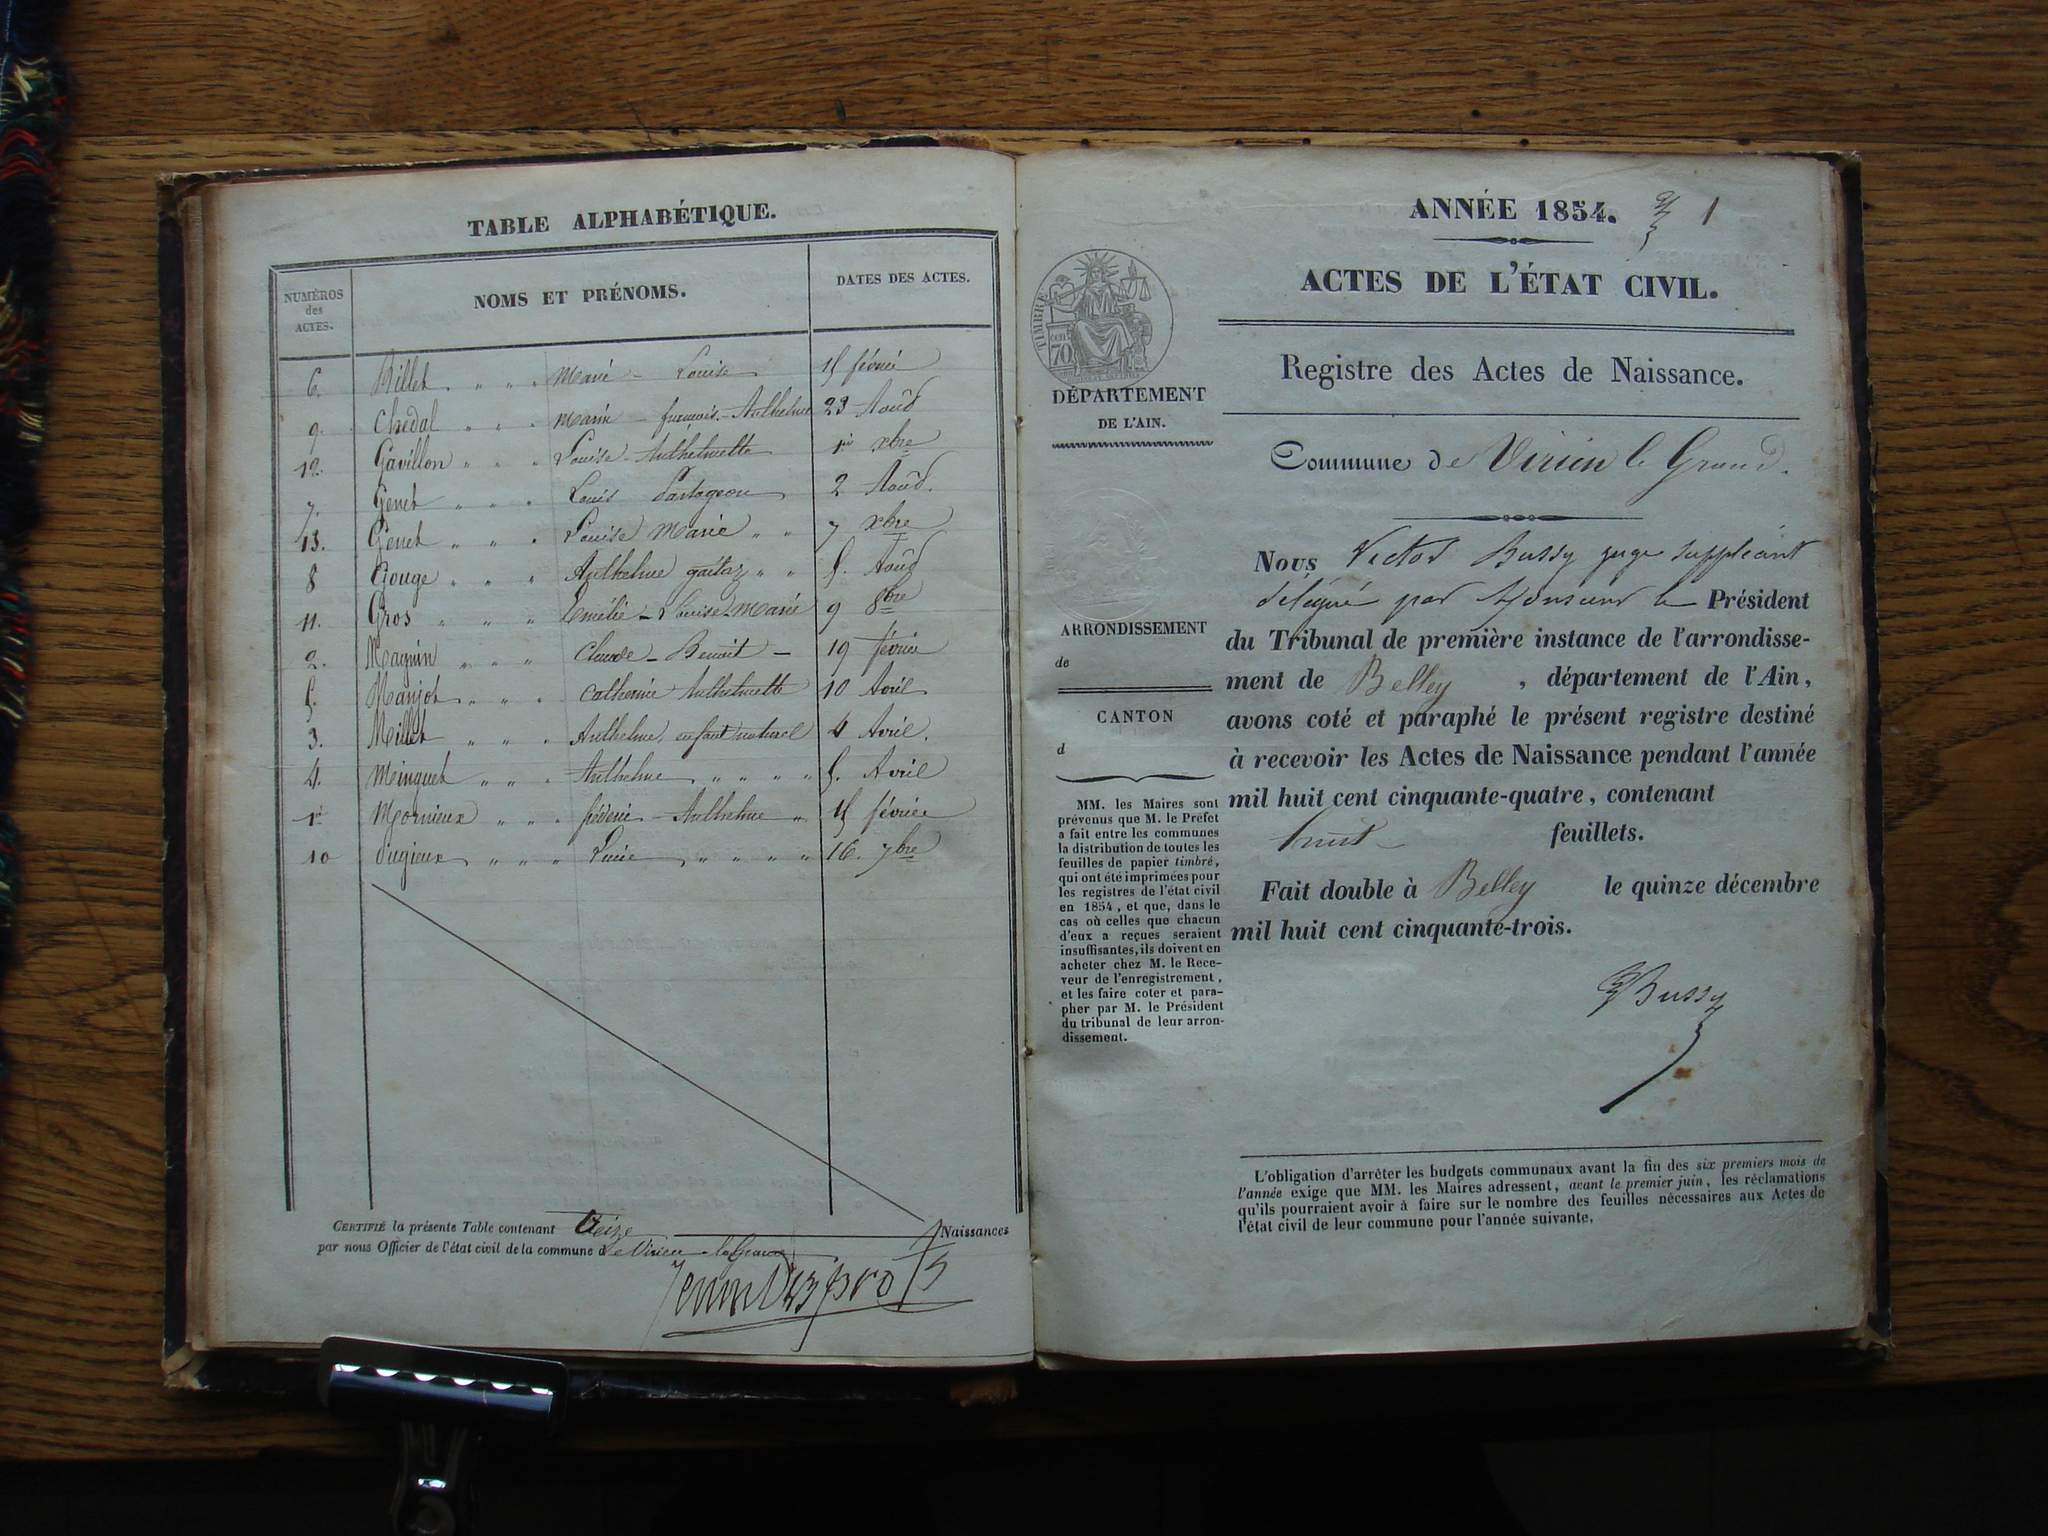 TABLE ALPHABÉTIQUE.
NUMÉROS
des
ACTES.
NOMS ET PRÉNOMS.
DATES DES ACTES.
6. Billet " " " Marie - Louise 15 février
9. Chedal " " " Marie - françois - Anthelme 23 Aoûd
12. Gavillon " " " Louise - Anthelmette 1er xbre
7. Genet " " " Louis 2 Aoûd.
13. Genet " " " Louise Marie " " 7 xbre
8 Gouge " " " Anthelme " " 5. Aoûd
11. Gros " " " Emélie - Louise - Marie 9 8bre
2. Magnin " " " Claude - Benoit - 19 février
5. Manjot " " " Catherine Anthelmette 10 Avril
3. Millet " " " Anthelme, enfant naturel 4 Avril.
4. Minguet " " " Anthelme " " " " 5. Avril
1er Mornieux " " " fréderic - Anthelme " 15 février
10 Pugieux " " " Lucie " " " " 16. 7bre
CERTIFIÉ la présente Table contenant treize Naissances
par nous Officier de l'état civil de la commune de Virieu-le-Grand
ANNÉE 1854. 1
ACTES DE L'ÉTAT CIVIL.
TIMBRE
cen
70
Registre des Actes de Naissance.
DÉPARTEMENT
DE L'AIN.
Commune de Virieu le Grand.
Nous Victor Bussy juge suppléant
délégué par Monsieur le Président
du Tribunal de première instance de l'arrondisse-
ment de Belley, département de l'Ain,
avons coté et paraphé le présent registre destiné
à recevoir les Actes de Naissance pendant l'année
mil huit cent cinquante-quatre, contenant
huit feuillets.
Fait double à Belley le quinze décembre
mil huit cent cinquante-trois.
Bussy
ARRONDISSEMENT
de
CANTON
d
MM. les Maires sont
prévenus que M. le Préfet
a fait entre les communes
la distribution de toutes les
feuilles de papier timbré,
qui ont été imprimées pour
les registres de l'état civil
en 1854, et que, dans le
cas où celles que chacun
d'eux a reçues seraient
insuffisantes, ils doivent en
acheter chez M. le Rece-
veur de l'enregistrement,
et les faire coter et para-
pher par M. le Président
du tribunal de leur arron-
dissement.
L'obligation d'arrêter les budgets communaux avant la fin des six premiers mois de
l'année exige que MM. les Maires adressent, avant le premier juin, les réclamations
qu'ils pourraient avoir à faire sur le nombre des feuilles nécessaires aux Actes de
l'état civil de leur commune pour l'année suivante.